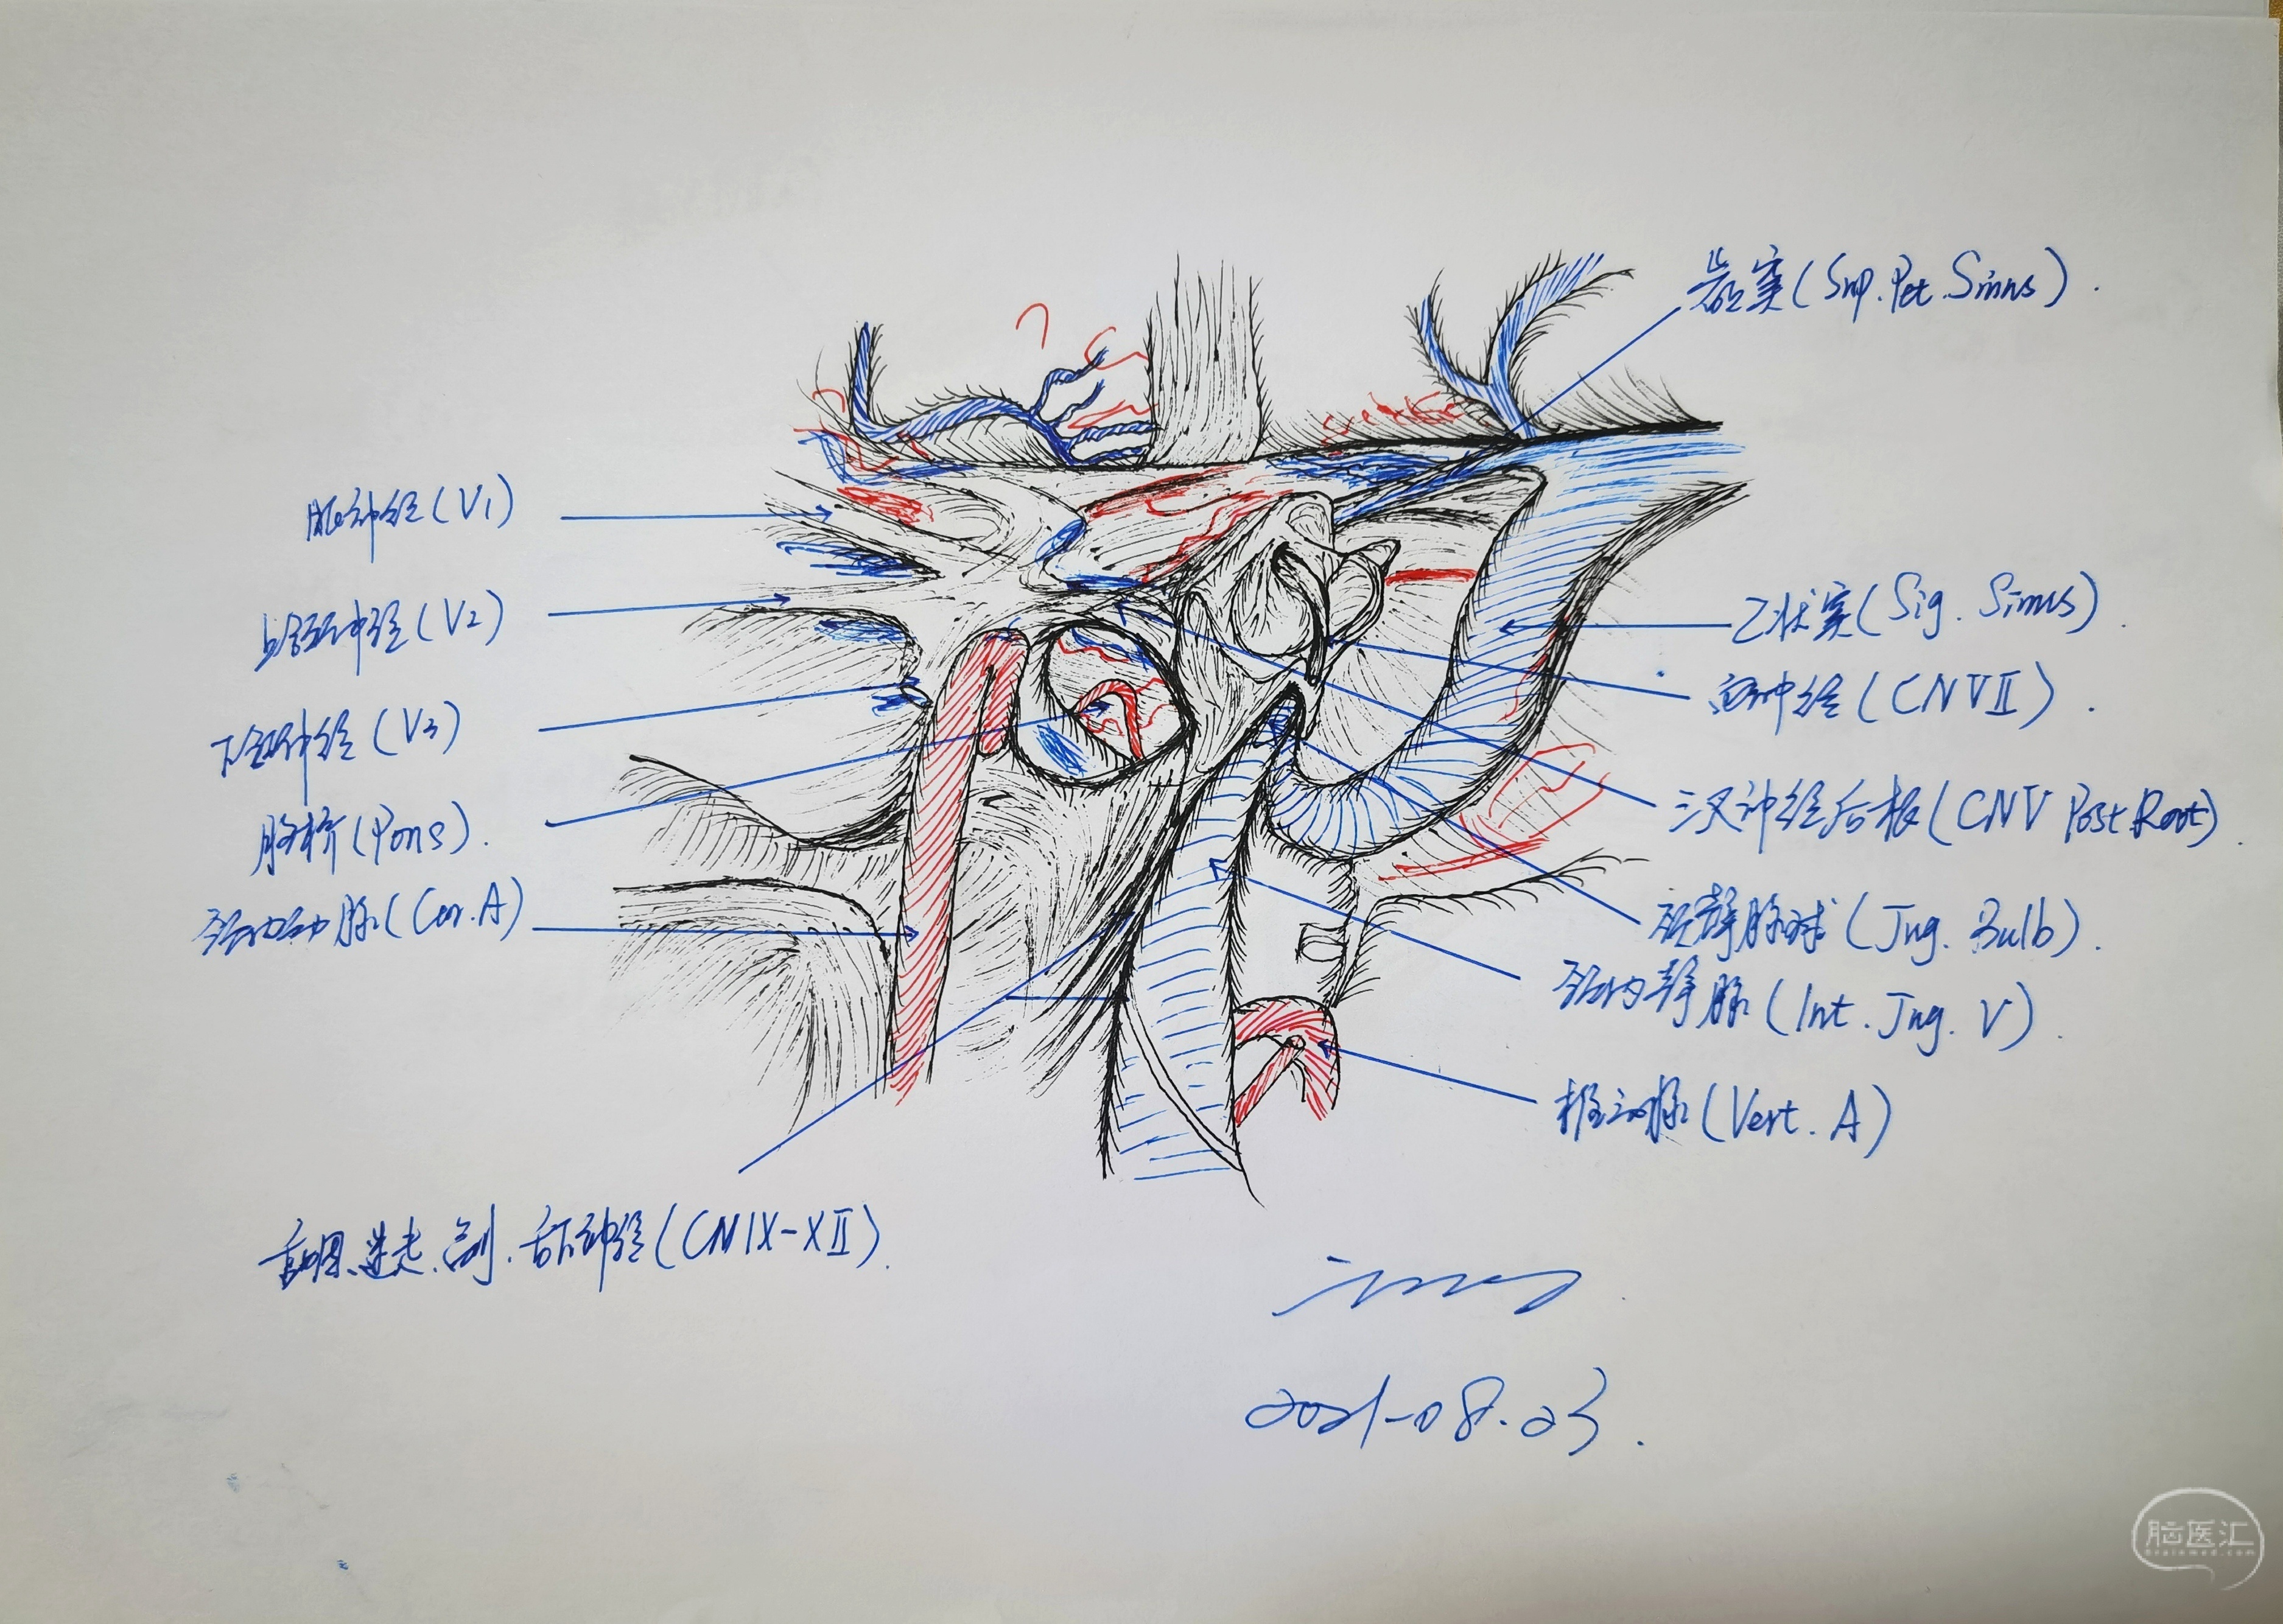 岩上窦(Sup.Pet.Sinus).
眼神经(V1)
上颌神经(V2)
下颌神经(V3)
脑桥(Pons).
颈内动脉(Car.A)
乙状窦(Sig.Sinus).
面神经(CNVII).
三叉神经后根(CNV Post.Root).
颈静脉球(Jug.Bulb).
颈内静脉(Int.Jug.V).
椎动脉(Vert.A)
舌咽、迷走、副、舌下神经(CNIX-XII).
2021-08.23.
脑医汇
brainmed.com